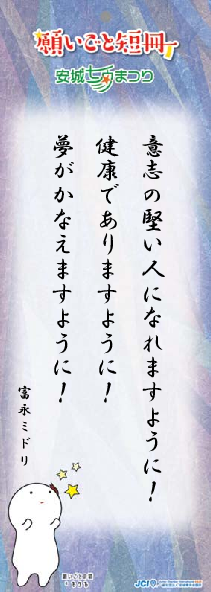 願いごと短冊
安城七夕まつり
意志の堅い人になれますように！
健康でありますように！
夢がかなえますように！
富永ミドリ
願いごとの国
JCI